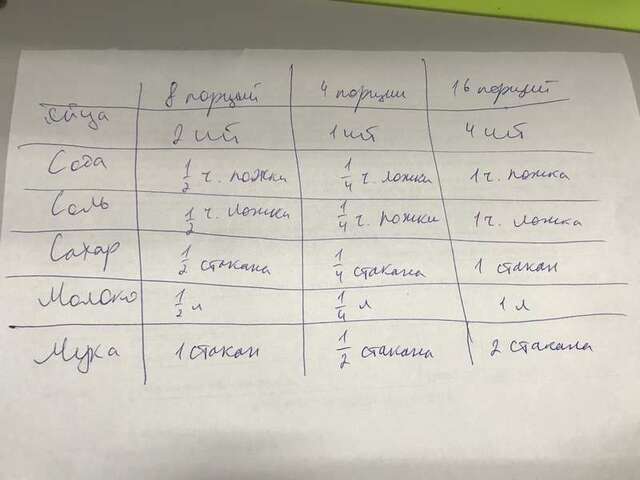 8 порций 4 порции 16 порций
Яйца 2 шт 1 шт 4 шт
Сода 1/2 ч. ложки 1/4 ч. ложки 1 ч. ложка
Соль 1/2 ч. ложки 1/4 ч. ложки 1 ч. ложка
Сахар 1/2 стакана 1/4 стакана 1 стакан
Молоко 1/2 л 1/4 л 1 л
Мука 1 стакан 1/2 стакана 2 стакана